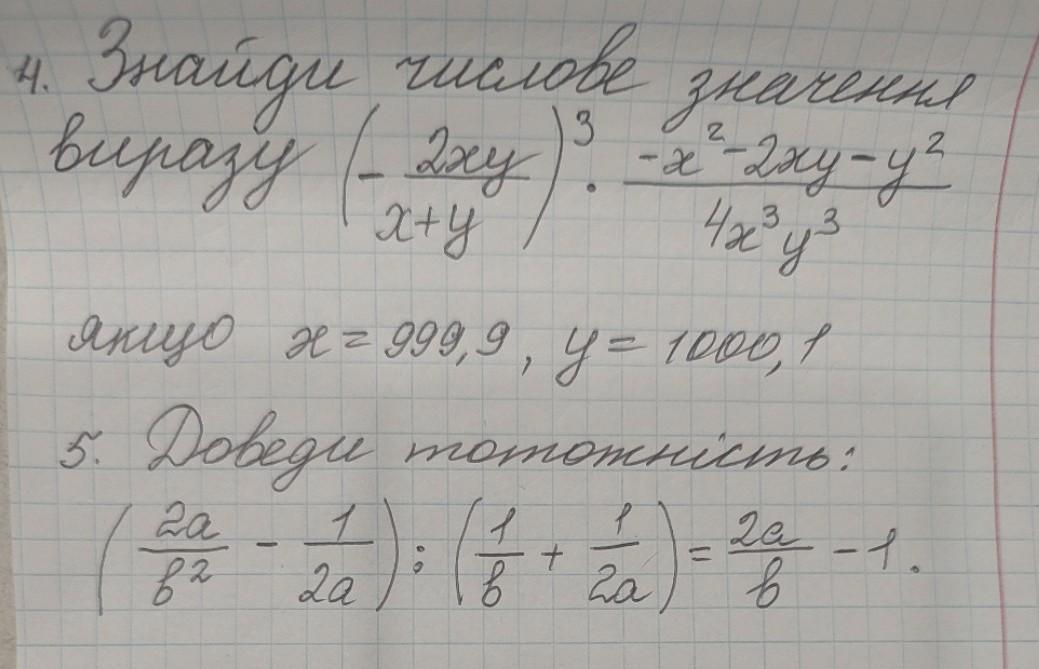 4. Знайди числове значення
виразу (- 2xy/(x+y))³ · (-x²-2xy-y²)/(4x³y³)
якщо x = 999,9, y = 1000,1
5. Доведи тотожність:
(2a/b² - 1/2a) : (1/b + 1/2a) = 2a/b - 1.